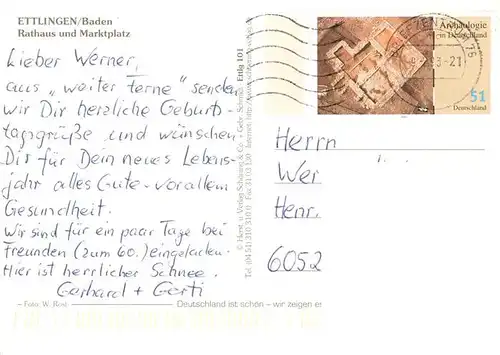 ETTLINGEN/Baden
Rathaus und Marktplatz
Lieber Werner,
aus „weiter Ferne" senden
wir Dir herzliche Geburts-
tagsgrüße und wünschen
Dir für Dein neues Lebens-
jahr alles Gute - vor allem
Gesundheit.
Wir sind für ein paar Tage bei
Freunden (zum 60.) eingeladen.
Hier ist herrlicher Schnee.
Gerhard + Gerti
– Foto: W. Rost
Deutschland ist schön – wir zeigen es
© Horst u. Verlag Schöning & Co. + Gebr. Schmidt
Ettlg 101
Archäologie
in Deutschland
51
Deutschland
Herrn
Wer
Henr.
6052